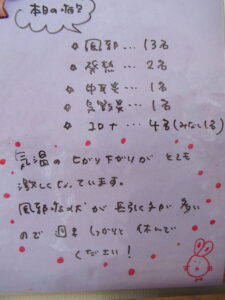 本日の病欠
☆ 風邪… 13名
☆ 発熱… 2名
☆ 中耳炎… 1名
☆ 気管支炎… 1名
☆ コロナ… 4名(みなし1名)
気温の上がり下がりが とても
激しくなっています。
風邪症状が 長引く子が 多い
ので 週末 しっかりと 休んで
ください!